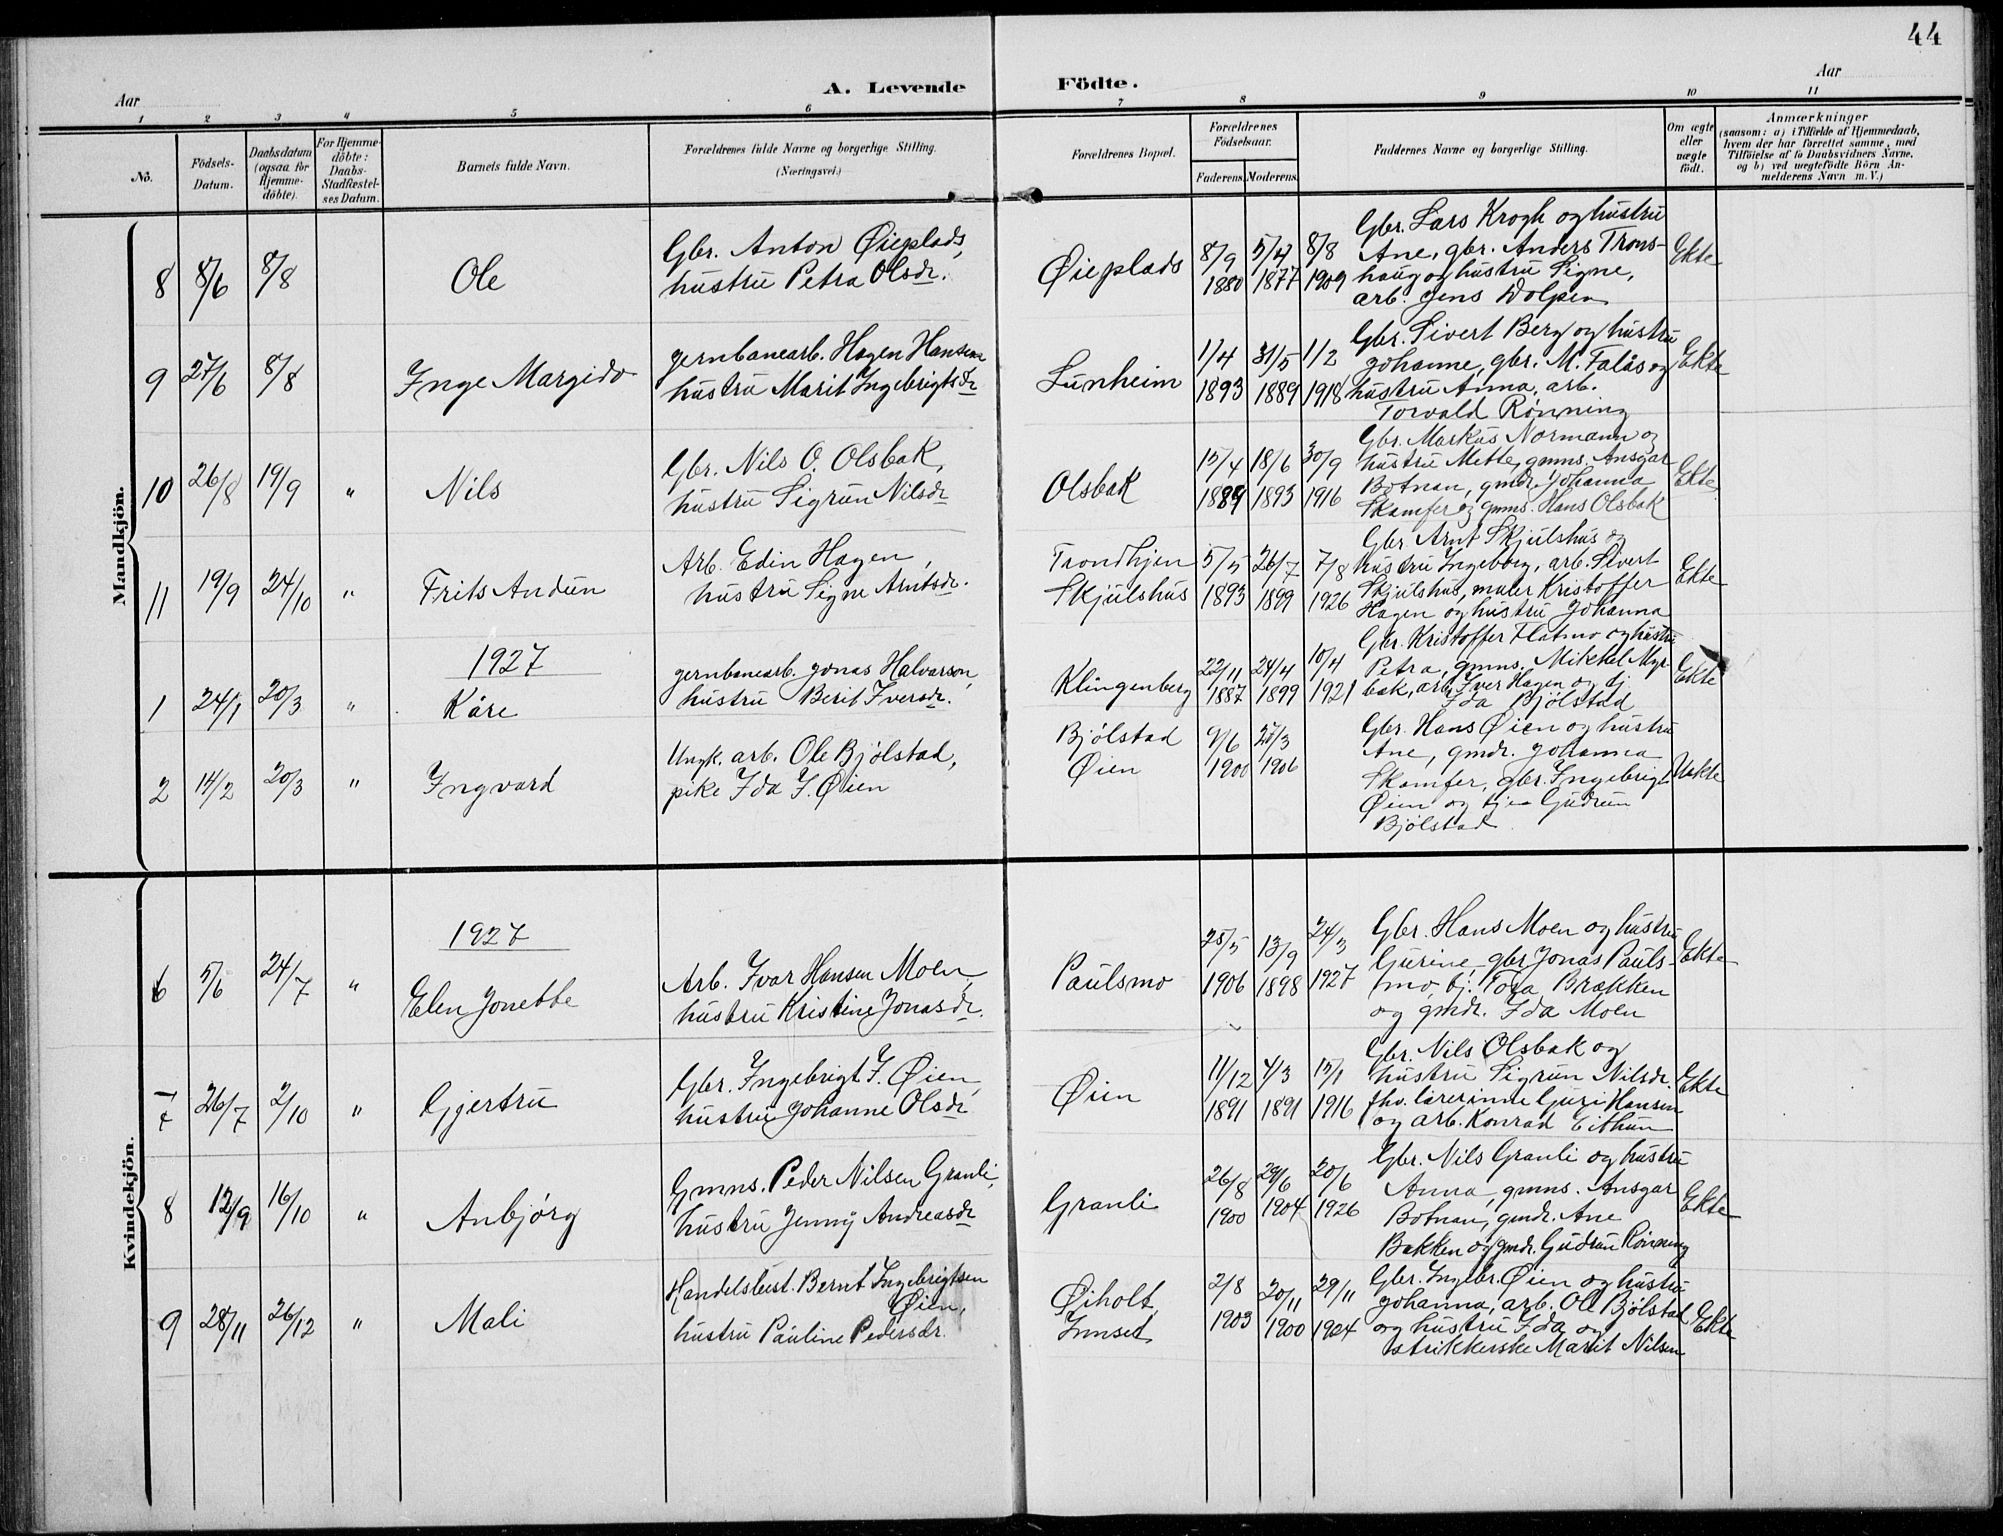 44
Aar
A. Levende
Födte.
Aar
1 2 3 4 5 6 7 8 9 10 11
No.
Födsels-Datum.
Daabsdatum (ogsaa for Hjemme-döbte).
For Hjemme-döbte: Daabs-Stadfæstel-ses Datum.
Barnets fulde Navn.
Forældrenes fulde Navne og borgerlige Stilling. (Næringsvei.)
Forældrenes Bopæl.
Forældrenes Födselsaar.
Faderens. Moderens.
Faddernes Navne og borgerlige Stilling.
Om ægte eller uægte födt.
Anmærkninger
(saasom: a) i Tilfælde af Hjemmedaab,
hvem der har forrettet samme, med
Tilföielse af to Daabsvidners Navne,
og b) ved uægtefödte Börn An-
melderens Navn m. V.)
Mandkjön.
8 8/6 8/8 Ole
Gbr. Anton Øieplads,
hustru Petra Olsdr.
Øieplads
8/9 1880 5/4 1877 8/8 1909
Gbr. Lars Krogh og hustru
Ane, gbr. Anders Trons-
haug og hustru Signe,
arb. Jens Dolpen
Ekte
9 27/6 8/8 Inge Margido
Jernbanearb. Hagen Hansen
hustru Marit Ingebrigtsdr
Lunheim
1/4 1893 31/5 1889 1/2 1918
Gbr. Sivert Berg og hustru
Johanne, gbr. M. Falås og
hustru Anna, arb.
Torvald Rønning
Ekte
10 26/8 19/9 " Nils
Gbr. Nils O. Olsbak,
hustru Sigrun Nilsdr
Olsbak
15/4 1889 18/6 1893 30/9 1916
Gbr. Markus Normann og
hustru Mette, gmns. Ansgar
Botnan, gmdr. Johanna
Skamfer og gmns. Hans Olsbak
Ekte
11 19/9 24/10 " Frits Audun
Arb. Edin Hagen,
hustru Signe Arntsdr.
Trondhjem
Skjulshus
5/5 1893 26/7 1899 7/8 1926
Gbr Arnt Skjulshus og
hustru Ingeborg, arb. Sivert
Skjulshus, maler Kristoffer
Hagen og hustru Johanna
Ekte
1927
1 24/1 20/3 " Kåre
Jernbanearb. Jonas Halvarson,
hustru Berit Iversdr.
Klingenberg
22/11 1887 24/4 1899 10/4 1921
Gbr. Kristoffer Flatmo og hustru
Petra, gmns. Mikkel Myr-
bak, arb. Iver Hagen og tj
Ida Bjølstad
Ekte
2 14/2 20/3 " Ingvard
Ungk. arb. Ole Bjølstad,
pike Ida I. Øien
Bjølstad
Øien
9/6 1900 25/3 1906
Gbr. Hans Øien og hustru
Ane, gmdr. Johanna
Skamfer, gbr. Ingebrigt
Øien og tje Gudrun
Bjølstad
Uekte
Kvindekjön.
1927
6 5/6 24/7 " Elen Jonette
Arb. Ivar Hansen Moen,
hustru Kristine Jonasdr.
Paulsmo
25/5 1906 13/9 1898 24/3 1927
Gbr. Hans Moen og hustru
Gurine, gbr Jonas Pauls-
mo, tj. Tora Brækken
og gmdr. Ida Moen
Ekte
7 26/7 2/10 " Gjertru
Gbr. Ingebrigt I. Øien,
hustru Johanne Olsdr
Øien
11/12 1891 4/3 1891 15/1 1916
Gbr. Nils Olsbak og
hustru Sigrun Nilsdr.
fhv. lærerinne Guri Hansen
og arb. Konrad Eithun
Ekte
8 12/9 16/10 " Anbjørg
Gmns. Peder Nilsen Granli,
hustru Jenny Andreasdr
Granli
26/8 1900 29/6 1904 20/6 1926
Gbr. Nils Granli og hustru
Anna, gmns. Ansgar
Botnan, gmdr. Ane
Bakken og gmdr. Gudrun Rønning
Ekte
9 28/11 26/12 " Mali
Handelsbest. Bernt Ingebrigtsen
Øien,
hustru Pauline Pedersdr.
Øiholt,
Innset
2/8 1903 20/11 1900 29/11 1924
Gbr. Ingebr. Øien og hustru
Johanna, arb. Ole Bjølstad
og hustru Ida og
strikkerske Marit Nilsen
Ekte